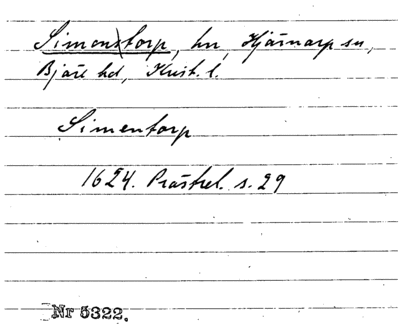 Simonstorp, hn, Hjärnarp sn,
Bjäre hd, Krist. l.
Simentorp
1624. Prästrel. s. 29
Nr 5322.